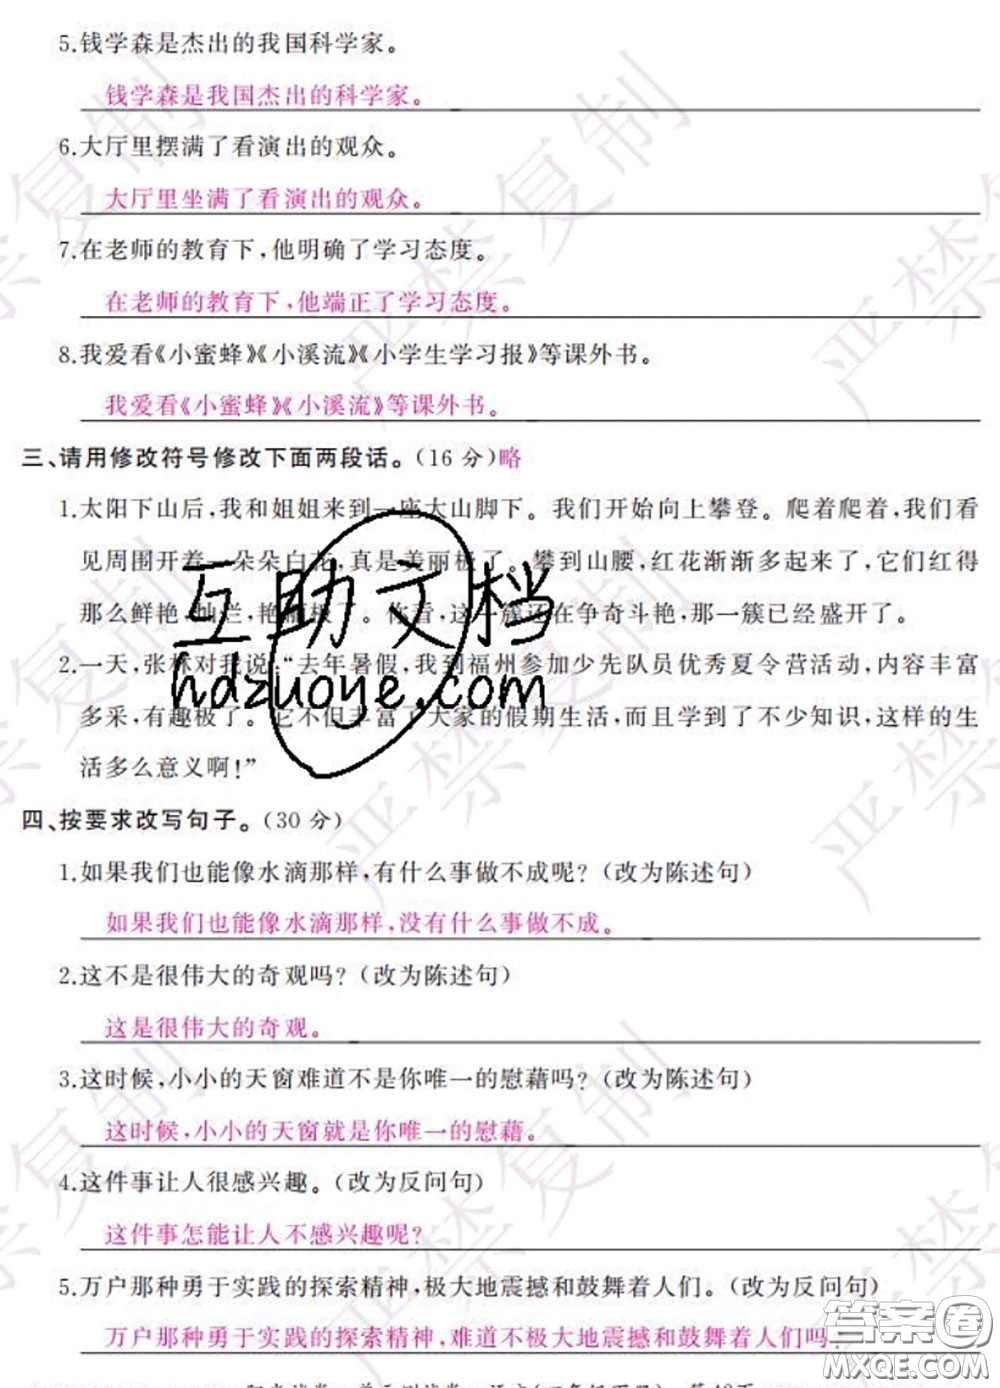 5.钱学森是杰出的我国科学家。
钱学森是我国杰出的科学家。
6.大厅里摆满了看演出的观众。
大厅里坐满了看演出的观众。
7.在老师的教育下，他明确了学习态度。
在老师的教育下，他端正了学习态度。
8.我爱看《小蜜蜂》《小溪流》《小学生学习报》等课外书。
我爱看《小蜜蜂》《小溪流》等课外书。
三、请用修改符号修改下面两段话。(16分)略
1.太阳下山后，我和姐姐来到一座大山脚下。我们开始向上攀登。爬着爬着，我们看
见周围开着一朵朵白花，真是美丽极了。攀到山腰，红花渐渐多起来了，它们红得
那么鲜艳，灿烂，艳丽极了。你看，这一簇还在争奇斗艳，那一簇已经盛开了。
2.一天，张林对我说：“去年暑假，我到福州参加少先队员优秀夏令营活动，内容丰富
多采，有趣极了。它不但丰富了大家的假期生活，而且学到了不少知识，这样的生
活多么意义啊！”
互助文档
hdzuoye.com
四、按要求改写句子。(30分)
1.如果我们也能像水滴那样，有什么事做不成呢？(改为陈述句)
如果我们也能像水滴那样，没有什么事做不成。
2.这不是很伟大的奇观吗？(改为陈述句)
这是很伟大的奇观。
3.这时候，小小的天窗难道不是你唯一的慰藉吗？(改为陈述句)
这时候，小小的天窗就是你唯一的慰藉。
4.这件事让人很感兴趣。(改为反问句)
这件事怎能让人不感兴趣呢？
5.万户那种勇于实践的探索精神，极大地震撼和鼓舞着人们。(改为反问句)
万户那种勇于实践的探索精神，难道不极大地震撼和鼓舞着人们吗？
答案圈
MXQE.COM
严禁复制
严禁复制